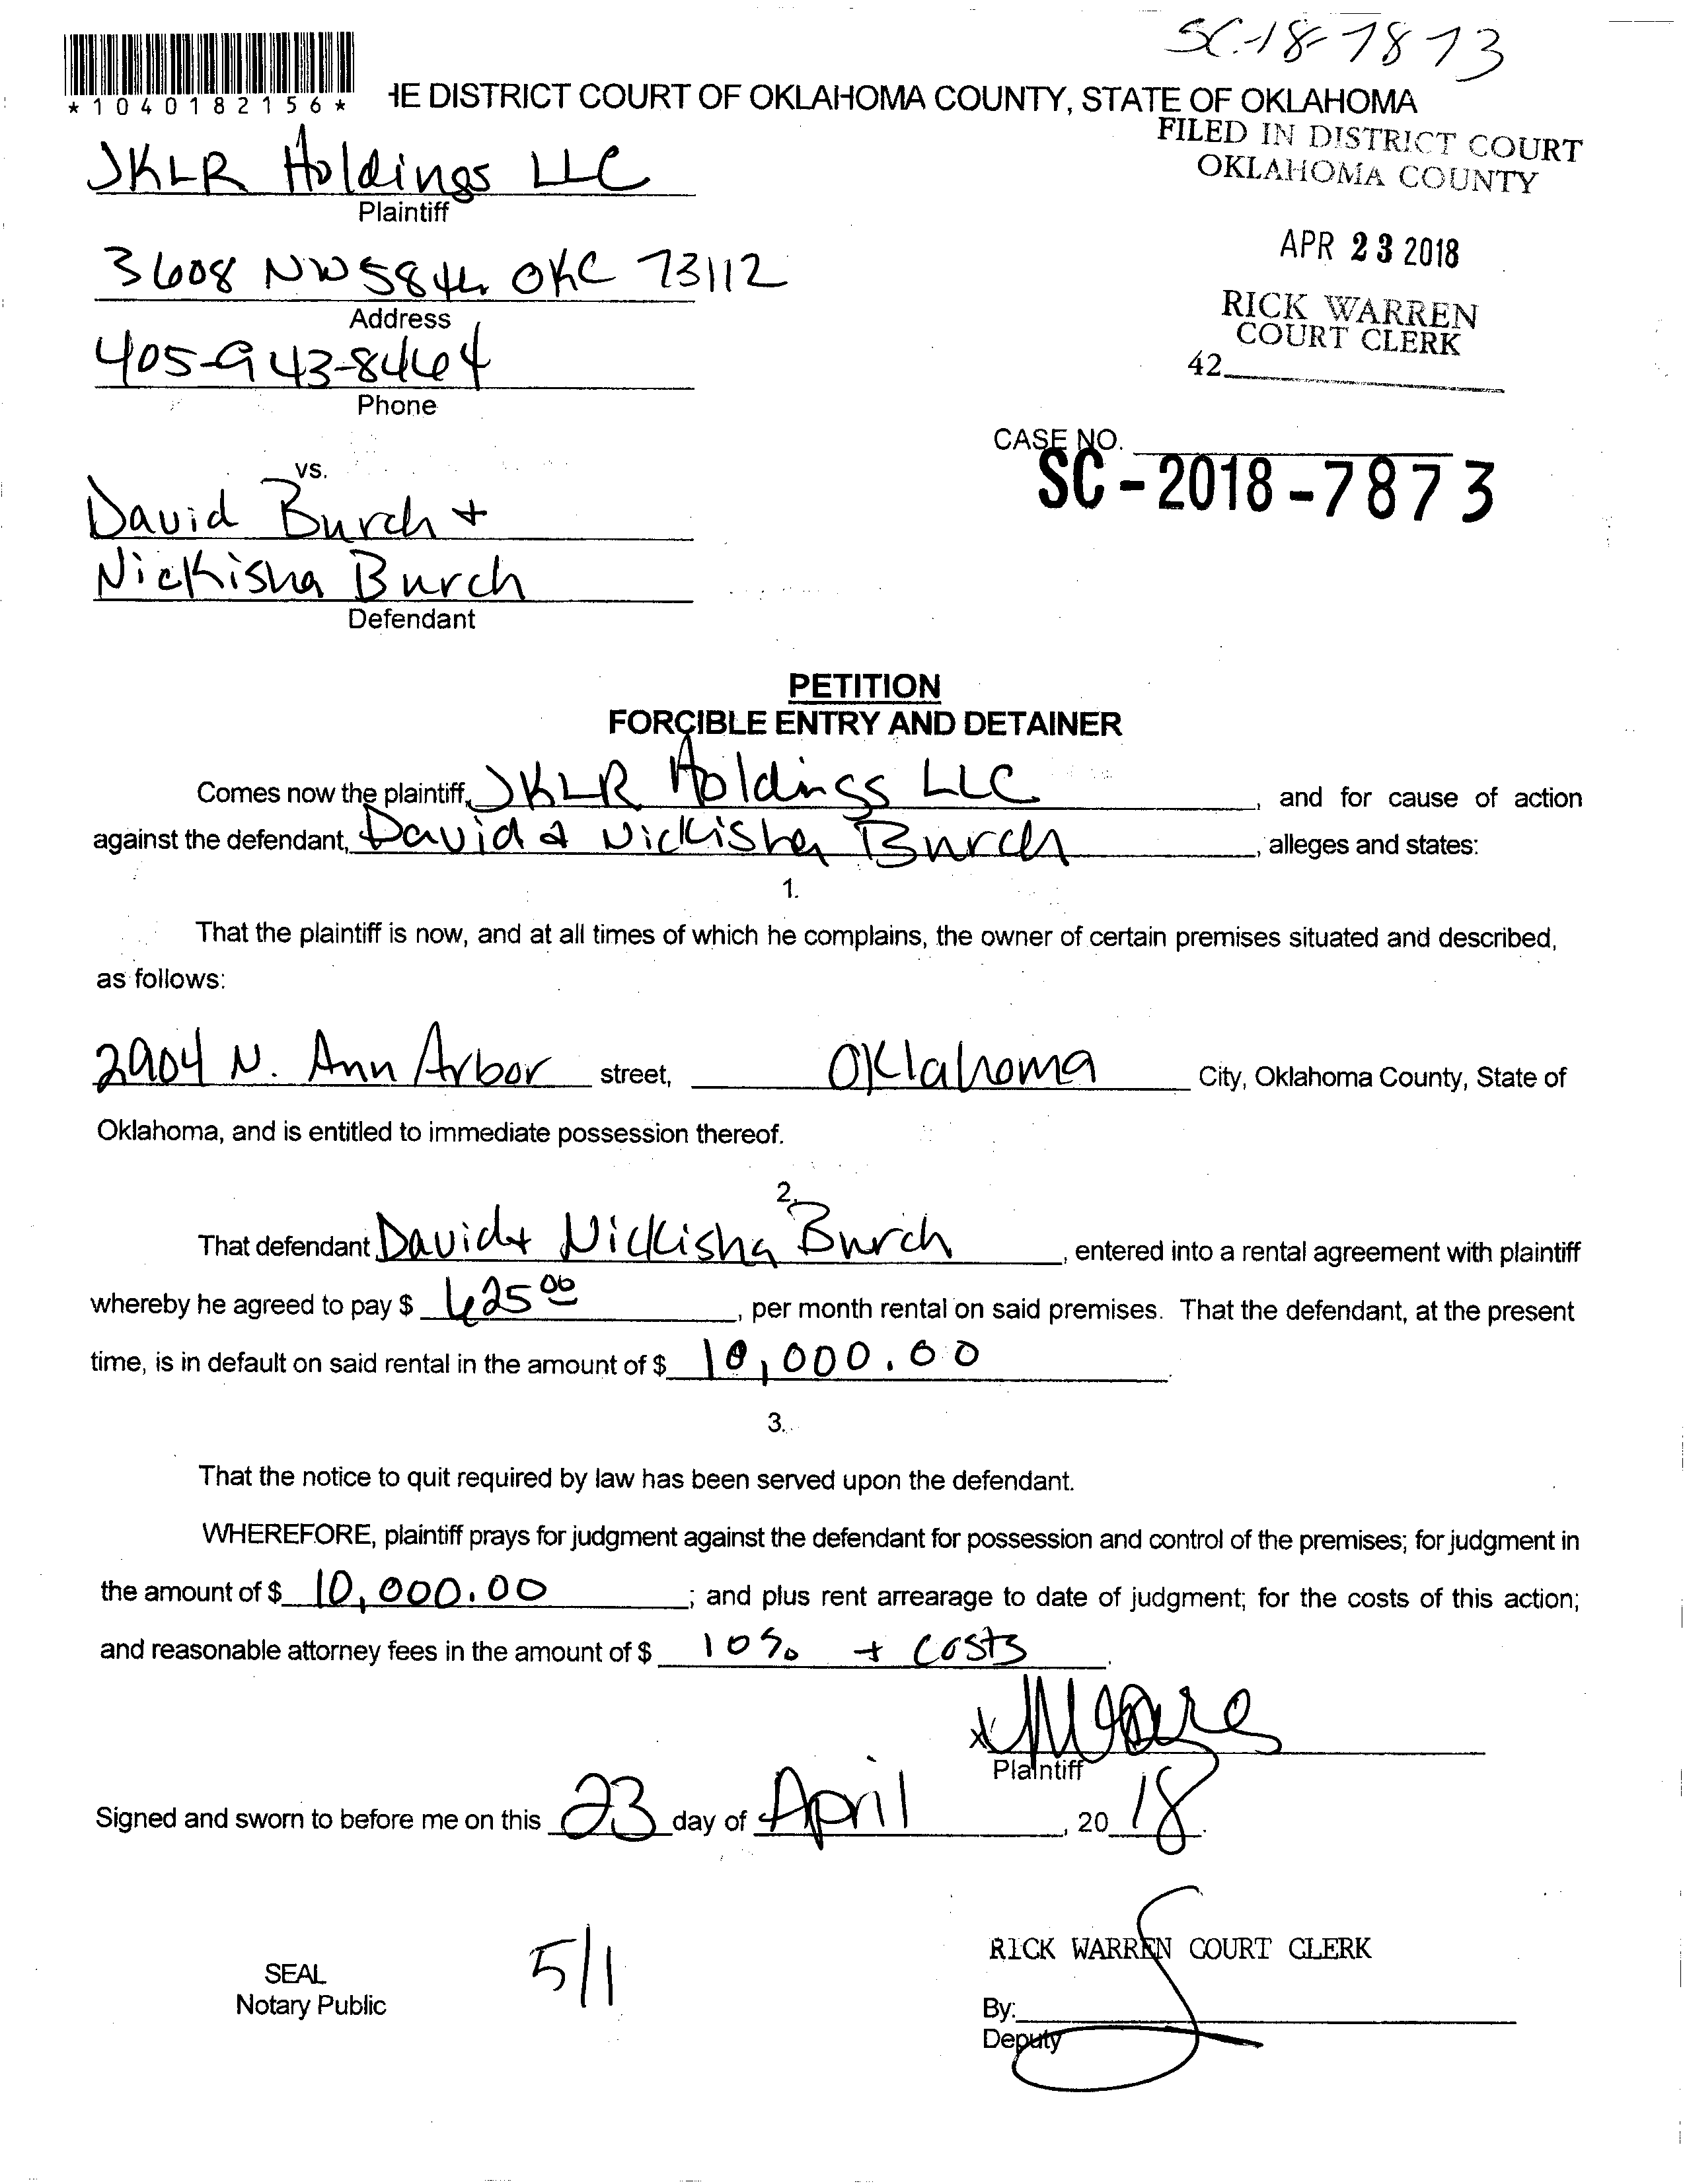 SC-18-7873
*1040182156*
HE DISTRICT COURT OF OKLAHOMA COUNTY, STATE OF OKLAHOMA
FILED IN DISTRICT COURT
OKLAHOMA COUNTY
JKLR Holdings LLC
Plaintiff
APR 23 2018
3608 NW 58th OKC 73112
Address
RICK WARREN
COURT CLERK
405-943-8464
42
Phone
CASE NO.
SC-2018-7873
vs.
David Burch +
Nickisha Burch
Defendant
PETITION
FORCIBLE ENTRY AND DETAINER
Comes now the plaintiff, JKLR Holdings LLC, and for cause of action
against the defendant, David & Nickisha Burch, alleges and states:
1.
That the plaintiff is now, and at all times of which he complains, the owner of certain premises situated and described,
as follows:
2904 N. Ann Arbor street, Oklahoma City, Oklahoma County, State of
Oklahoma, and is entitled to immediate possession thereof.
2.
That defendant David + Nickisha Burch, entered into a rental agreement with plaintiff
whereby he agreed to pay $ 625.00, per month rental on said premises. That the defendant, at the present
time, is in default on said rental in the amount of $ 10,000.00.
3.
That the notice to quit required by law has been served upon the defendant.
WHEREFORE, plaintiff prays for judgment against the defendant for possession and control of the premises; for judgment in
the amount of $ 10,000.00; and plus rent arrearage to date of judgment; for the costs of this action;
and reasonable attorney fees in the amount of $ 10% + costs.
x
Plaintiff
Signed and sworn to before me on this 23 day of April, 20 18.
RICK WARREN COURT CLERK
SEAL
Notary Public
5/1
By:
Deputy